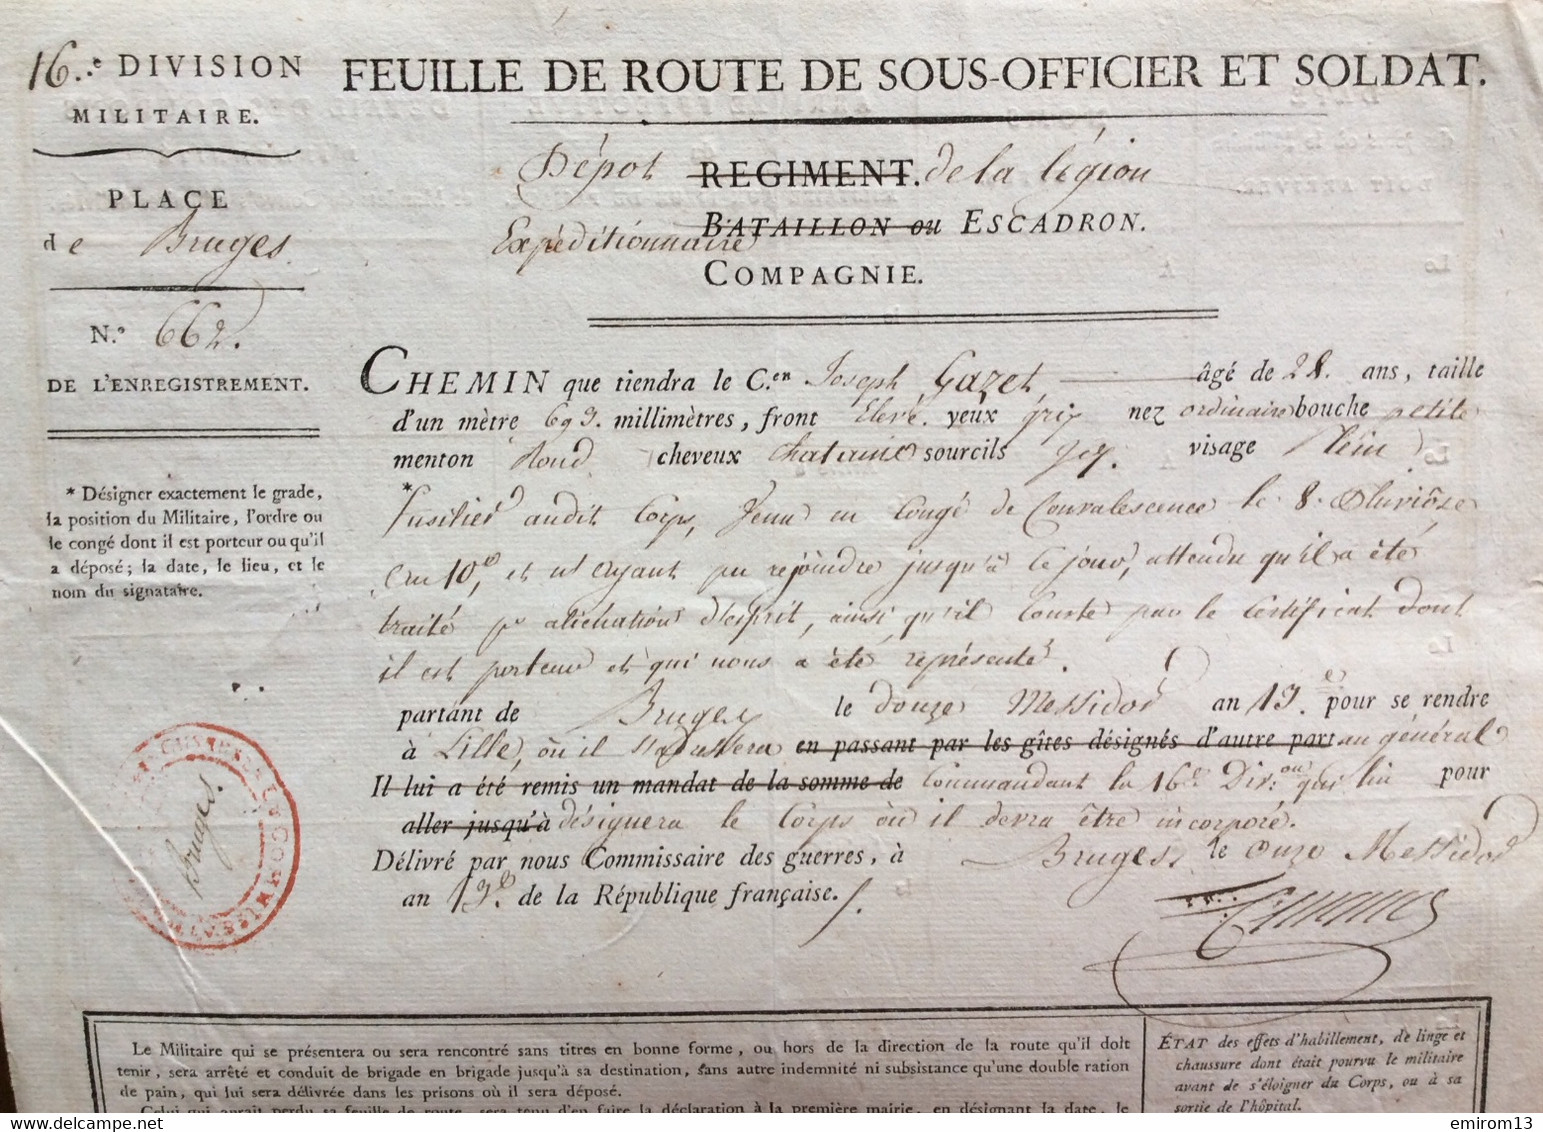 16.e DIVISION
MILITAIRE.
PLACE
de Bruges
N.o 662.
DE L'ENREGISTREMENT.
* Désigner exactement le grade,
la position du Militaire, l'ordre ou
le congé dont il est porteur ou qu'il
a déposé; la date, le lieu, et le
nom du signataire.
FEUILLE DE ROUTE DE SOUS-OFFICIER ET SOLDAT.
Dépot REGIMENT. de la légion
Expéditionnaire BATAILLON ou ESCADRON.
COMPAGNIE.
CHEMIN que tiendra le C.en Joseph Gazet, âgé de 28. ans, taille
d'un mètre 693. millimètres, front Elevé. yeux gris nez ordinaire bouche petite
menton Rond cheveux chataine sourcils visage plein
* fusilier audit Corps, Venu en Congé de Convalescence le 8. Pluviôse
an 10e, et n'ayant pu rejoindre jusqu'à ce jour, attendu qu'il a été
traité pr aliénation d'esprit, ainsi qu'il Conste par le Certificat dont
il est porteur et qui nous a été représenté.
partant de Bruges le douze Messidor an 13.e pour se rendre
à Lille, où il s'adressera en passant par les gîtes désignés d'autre part au général
Il lui a été remis un mandat de la somme de Commandant la 16e Div.on qui lui pour
aller jusqu'à désignera le Corps où il devra être incorporé.
Délivré par nous Commissaire des guerres, à Bruges, le onze Messidor
an 13e. de la République française.
Bruges.
Le Militaire qui se présentera ou sera rencontré sans titres en bonne forme, ou hors de la direction de la route qu'il doit
tenir, sera arrêté et conduit de brigade en brigade jusqu'à sa destination, sans autre indemnité ni subsistance qu'une double ration
de pain, qui lui sera délivrée dans les prisons où il sera déposé.
Celui qui aurait perdu sa feuille de route, sera tenu d'en faire la déclaration à la première mairie, en désignant la date, le
ÉTAT des effets d'habillement, de linge et
chaussure dont était pourvu le militaire
avant de s'éloigner du Corps, ou à sa
sortie de l'hôpital.
www.delcampe.net
emirom13